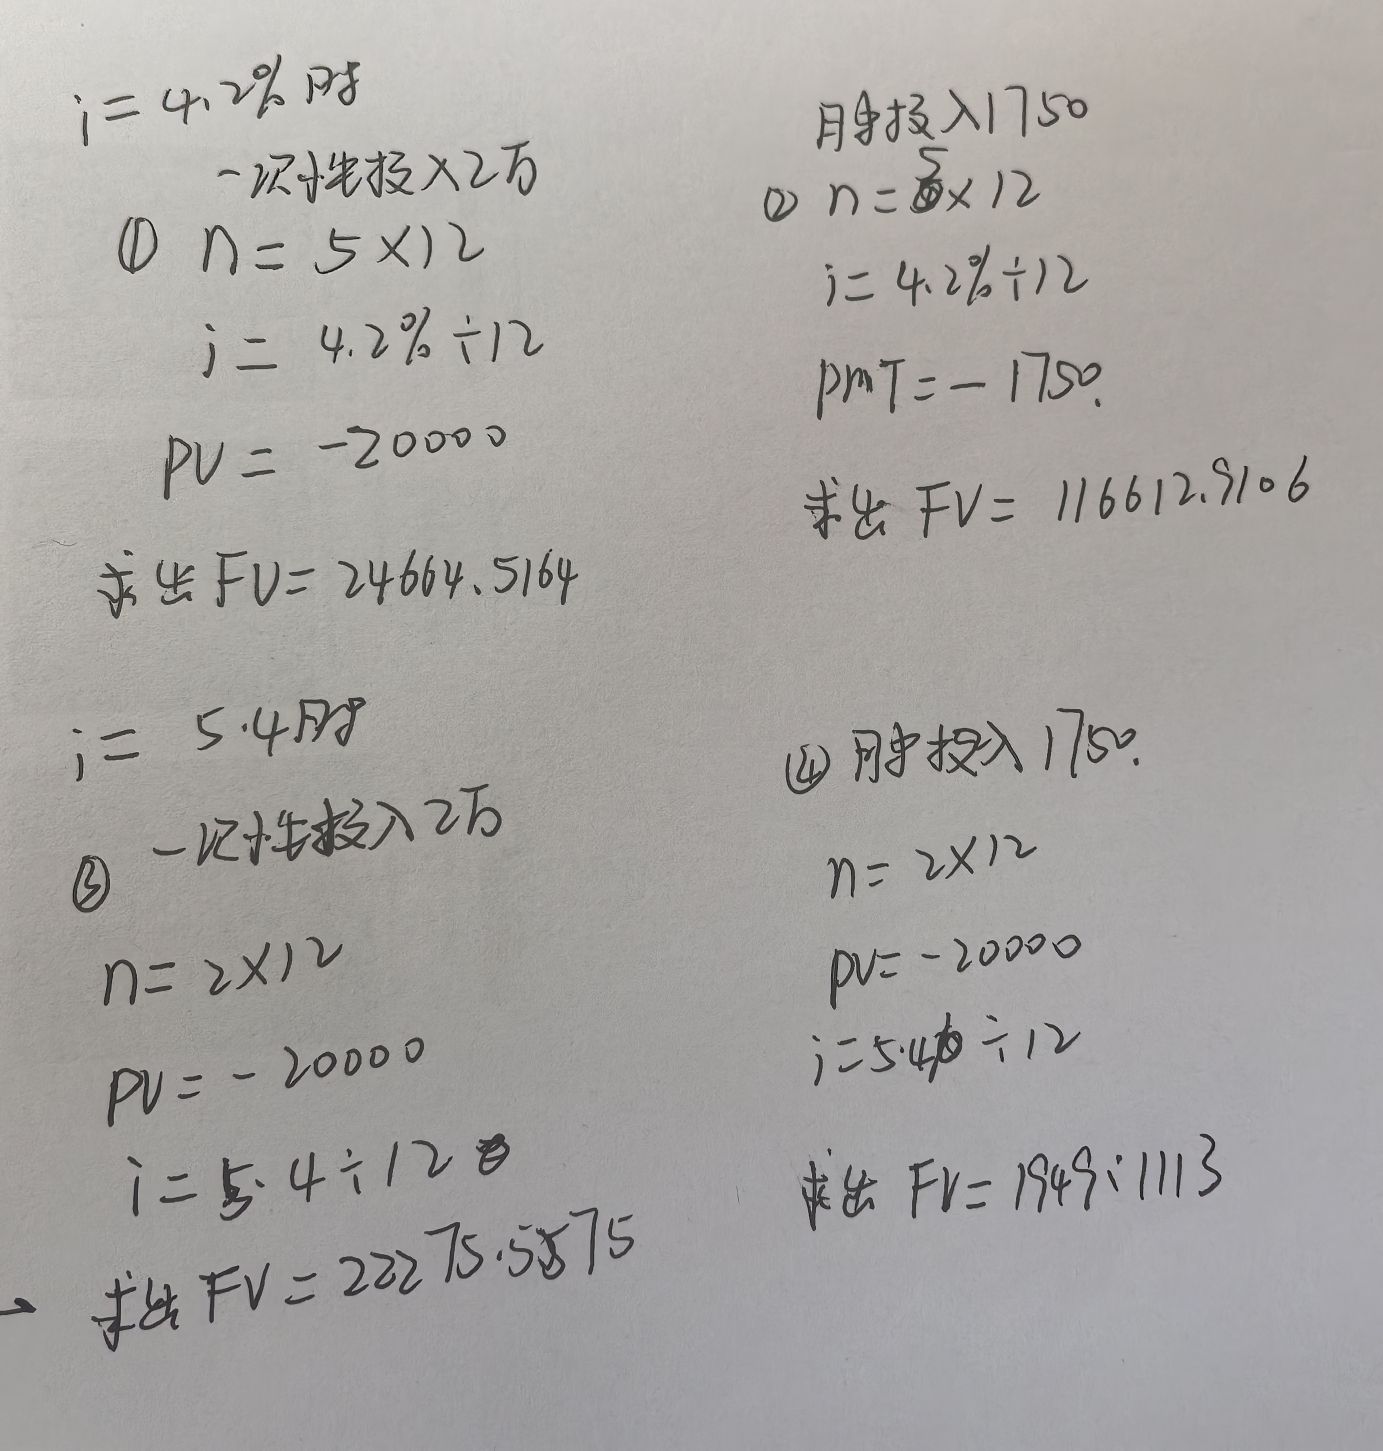 i = 4.2% 时
一次性投入2万
① n = 5×12
i = 4.2%÷12
PV = -20000
求出 FV = 24664.5164
月末投入1750
② n = 5×12
i = 4.2%÷12
PMT = -1750.
求出 FV = 116612.9106
i = 5.4时
一次性投入2万
③
n = 2×12
PV = -20000
i = 5.4÷12
求出 FV = 22275.5575
④ 月末投入1750.
n = 2×12
PV = -20000
i = 5.4÷12
求出 FV =